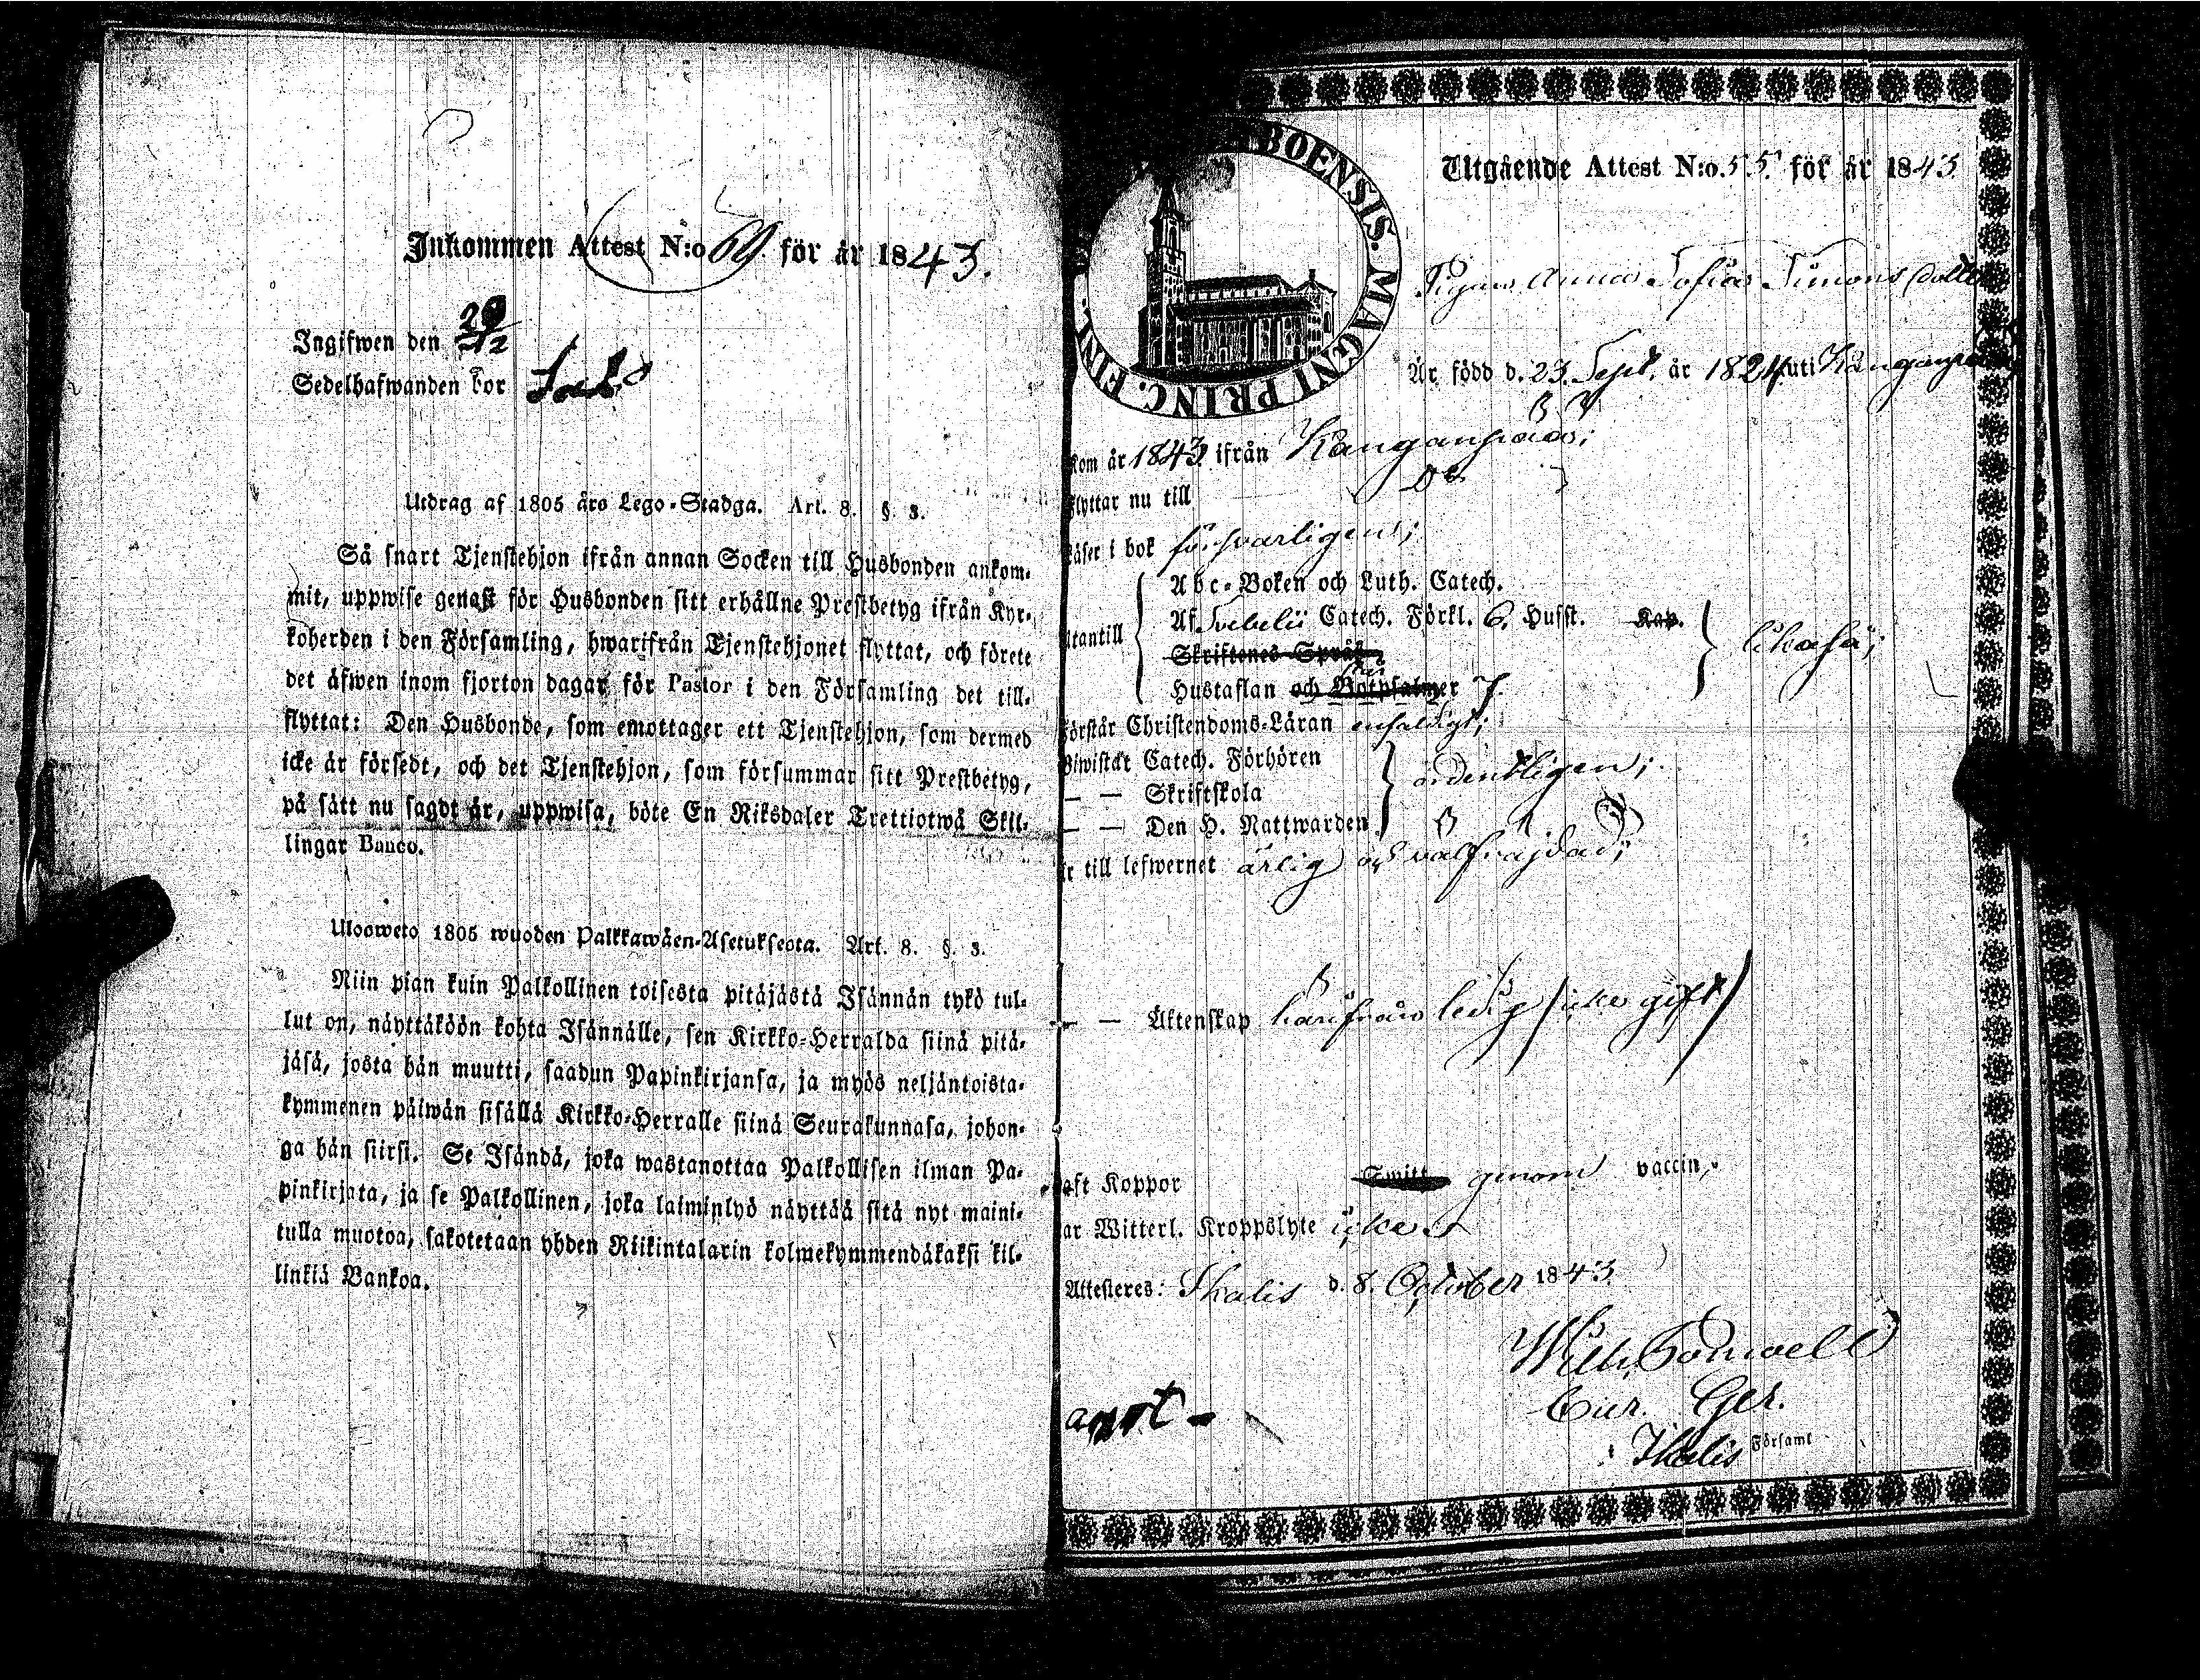 Inkommen Attest N:o 69. för år 1843.
Ingifwen den 29/12
Sedelhafwanden bor
Utdrag af 1805 års Lego-Stadga. Art. 8. §. 3.
Så snart Tjenstehjon ifrån annan Socken till Husbonden ankom-
mit, uppwise genast för Husbonden sitt erhållne Prestbetyg ifrån Kyr-
koherden i den Församling, hwarifrån Tjenstehjonet flyttat, och förete
det äfwen inom fjorton dagar för Pastor i den Församling det till-
flyttat: Den Husbonde, som emottager ett Tjenstehjon, som dermed
icke är försedt, och det Tjenstehjon, som försummar sitt Prestbetyg,
på sätt nu sagdt är, uppwisa, böte En Riksdaler Trettiotwå Skil-
lingar Banco.
Ulosweto 1805 wuoden Palkkawäen-Asetuksesta. Art. 8. §. 3.
Niin pian kuin Palkollinen toisesta pitäjästä Isännän tykö tul-
lut on, näyttäköön kohta Isännälle, sen Kirkko-Herralda siinä pitä-
jäsä, josta hän muutti, saadun Papinkirjansa, ja myös neljäntoista-
kymmenen päiwän sisällä Kirkko-Herralle siinä Seurakunnasa, johon-
ga hän siirsi. Se Isändä, joka wastanottaa Palkollisen ilman Pa-
pinkirjata, ja se Palkollinen, joka laiminlyö näyttää sitä nyt maini-
tulla muotoa, sakotetaan yhden Riikintalarin kolmekymmendäkaksi kil-
linkiä Bankoa.
BOENSIS. MAGNI PRINC. FINL.
Utgående Attest N:o. 55. för år 1843
Pigan Anna Sofia Simons dotter
Är född d. 23. Sept. år 1824 uti Kanganpää
kom år 1843 ifrån Kanganpää;
Flyttar nu till Do
Läser i bok försvarligen;
Utantill
Abc-Boken och Luth. Catech.
Af Svebelii Catech. Förkl. 6. Husst. Kap.
Skriftenes Språk
Hustaflan och Botpsalmer 7.
likaså;
Förstår Christendoms-Läran enfaldigt;
Biwistat Catech. Förhören
— — Skriftskola
— — Den H. Nattwarden
ordentligen;
Är till lefwernet ärlig och välfräjdad;
— — Äktenskap härifrån ledig /icke gift/
Haft Koppor Twitt genom vaccin.
Har Witterl. Kroppslyte icke
Attesteres: Ikalis d. 8. October 1843
Församl
Ikalis